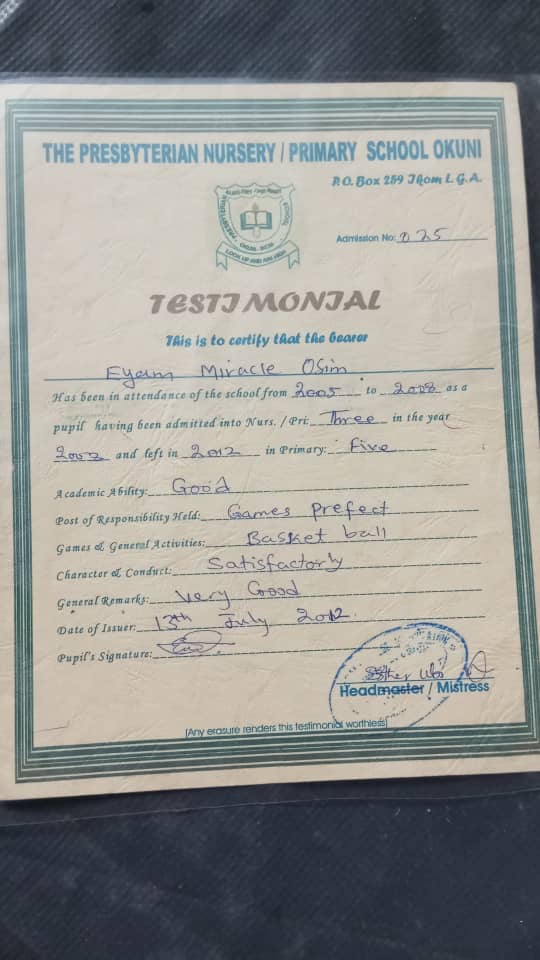 THE PRESBYTERIAN NURSERY / PRIMARY SCHOOL OKUNI
P.O. Box 259 Ikom L.G.A.
Admission No: 025
LOOK UP AND AIM HIGH
TESTIMONIAL
This is to certify that the bearer
Eyam Miracle Osim
Has been in attendance of the school from 2005 to 2008 as a
pupil having been admitted into Nurs. / Pri: Three in the year
and left in 2012 in Primary: Five
Academic Ability: Good
Post of Responsibility Held: Games Prefect
Games & General Activities: Basket ball
Character & Conduct: Satisfactorly
General Remarks: Very Good
Date of Issuer: 13th July 2012
Pupil's Signature:
Esther
Headmaster / Mistress
[Any erasure renders this testimonial worthless]